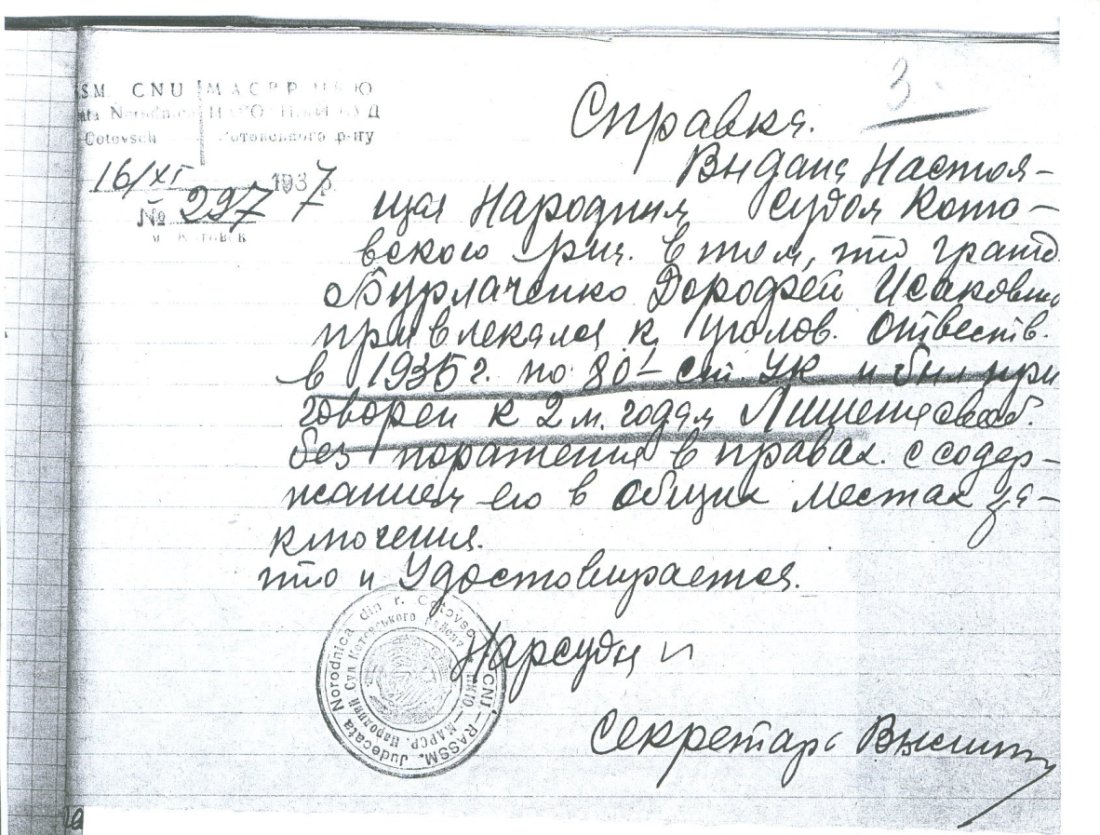 SM. CNU МАСРР НКЮ
Norodnica НАРОДНИЙ СУД
Cotovsch Котовського р-ну
16/XI 1937 р.
№ 297
м. Котовск
3.
Справка.
Выдана Настоя-
щая Народным судом Кото-
вского р-на. в том, что гражд.
Бурлаченко Дорофей Исакович
привлекался к уголов. ответств.
в 1935 г. по 80-1 ст. УК и был при
говорен к 2 м. годам Лишения своб.
без поражения в правах. с содер-
жанием его в общих местах за-
ключения.
что и Удостовиряется.
Нарсудья
Секретарь
Judecata Norodnica din r. Cotovsc CNU-RASSM.
Народний Суд Котовського Району НКЮ-МАРСР.